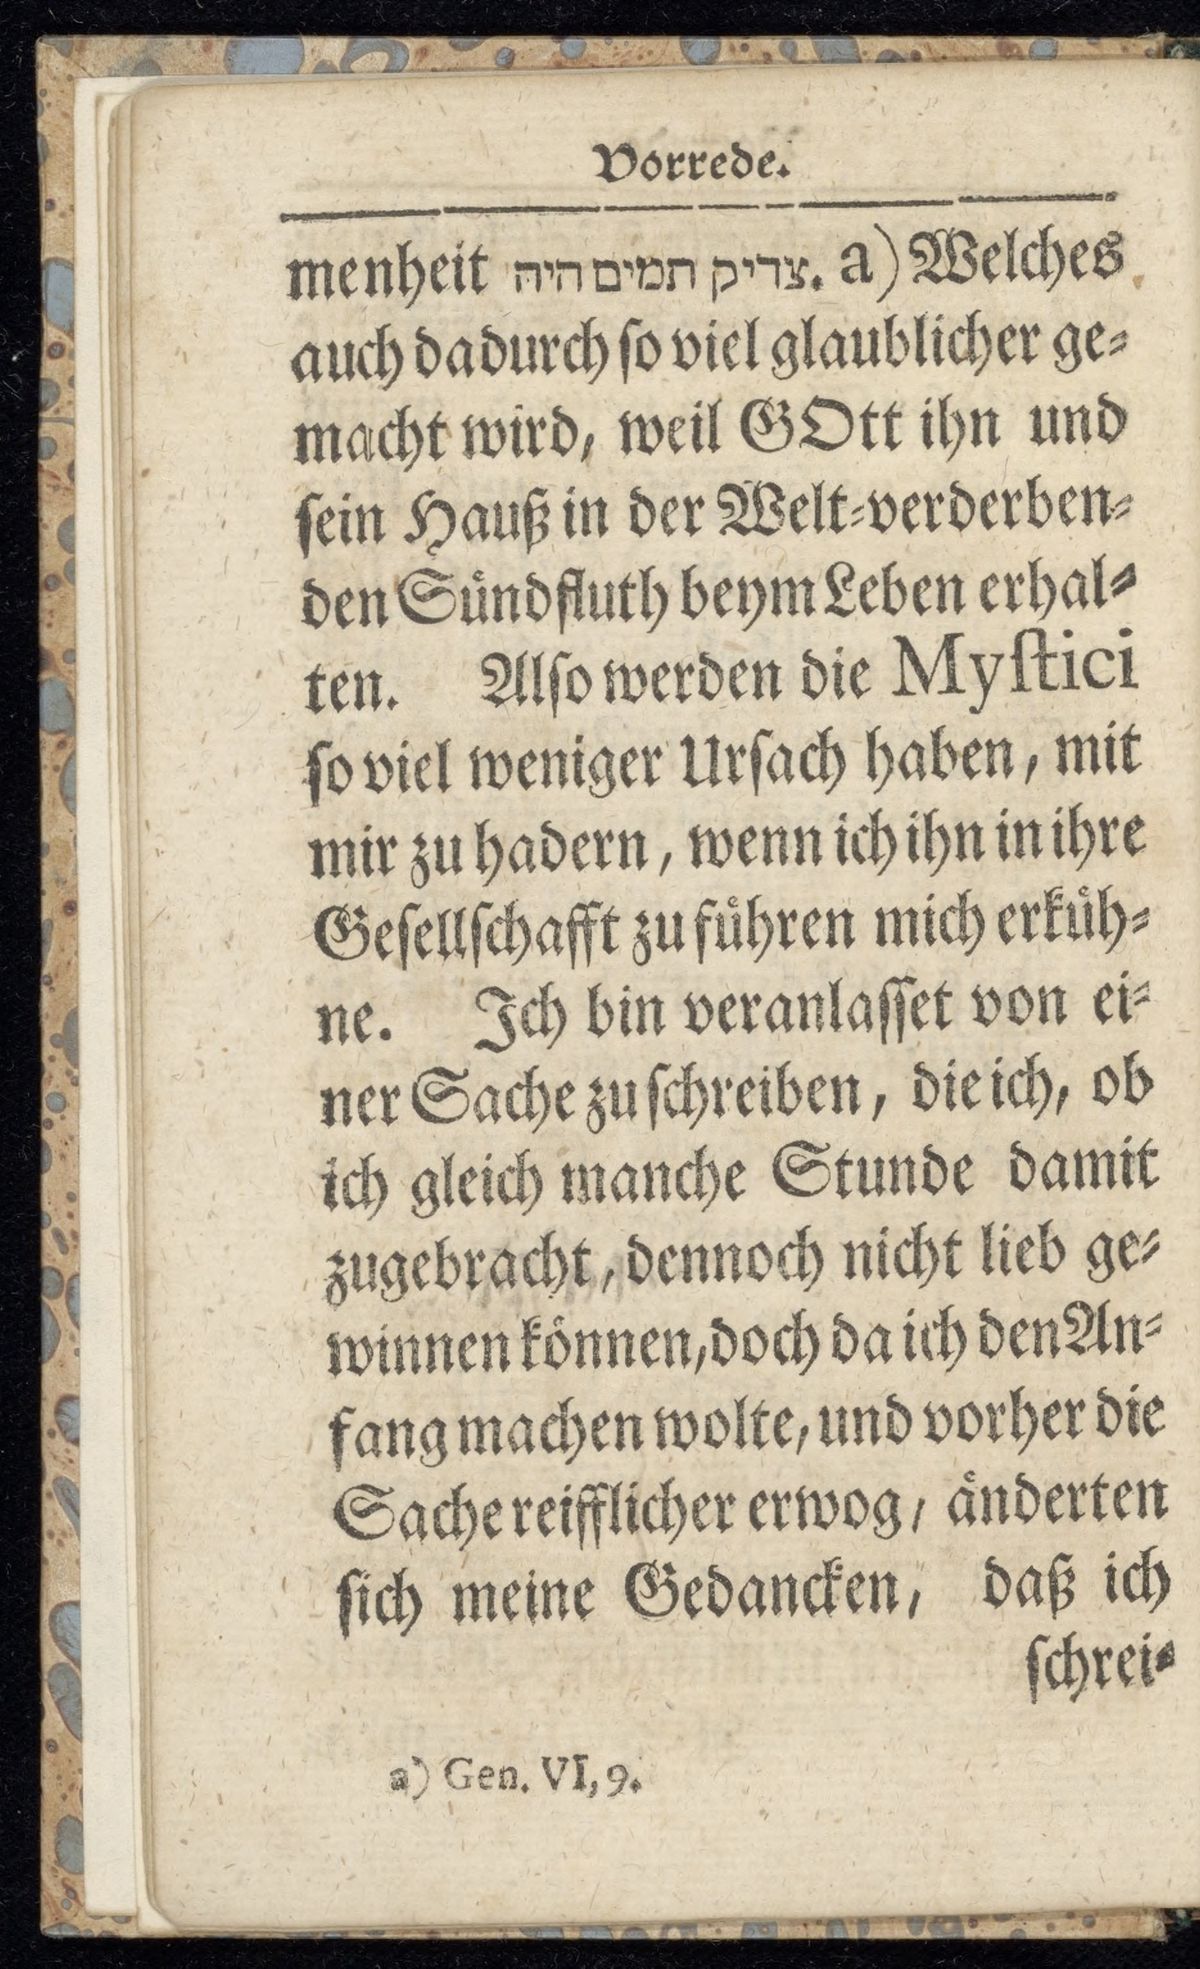 Vorrede.
menheit צדיק תמים היה. a) Welches
auch dadurch ſo viel glaublicher ge⸗
macht wird, weil GOtt ihn und
ſein Hauß in der Welt⸗verderben⸗
den Suͤndfluth beym Leben erhal⸗
ten. Alſo werden die Myſtici
ſo viel weniger Urſach haben, mit
mir zu hadern, wenn ich ihn in ihre
Geſellſchafft zu fuͤhren mich erkuͤh⸗
ne. Ich bin veranlaſſet von ei⸗
ner Sache zu ſchreiben, die ich, ob
ich gleich manche Stunde damit
zugebracht, dennoch nicht lieb ge⸗
winnen koͤnnen, doch da ich den An⸗
fang machen wolte, und vorher die
Sache reifflicher erwog, aͤnderten
ſich meine Gedancken, daß ich
ſchrei⸗
a) Gen. VI, 9.